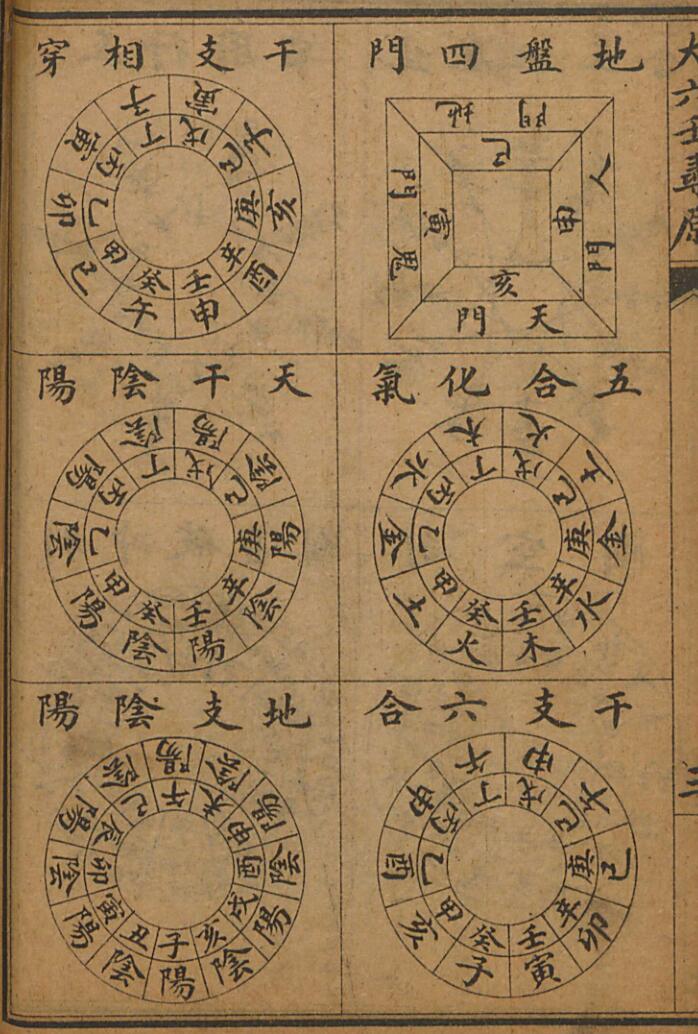 大六壬尋原
地盤四門
天門
亥
鬼門
寅
地門
巳
人門
申
干支相穿
甲乙丙丁戊己庚辛壬癸
巳卯寅子寅子亥酉申午
五合化氣
甲乙丙丁戊己庚辛壬癸
土金水木火土金水木火
天干陰陽
甲乙丙丁戊己庚辛壬癸
陽陰陽陰陽陰陽陰陽陰
干支六合
甲乙丙丁戊己庚辛壬癸
亥酉申午申午巳卯寅子
地支陰陽
子丑寅卯辰巳午未申酉戌亥
陽陰陽陰陽陰陽陰陽陰陽陰